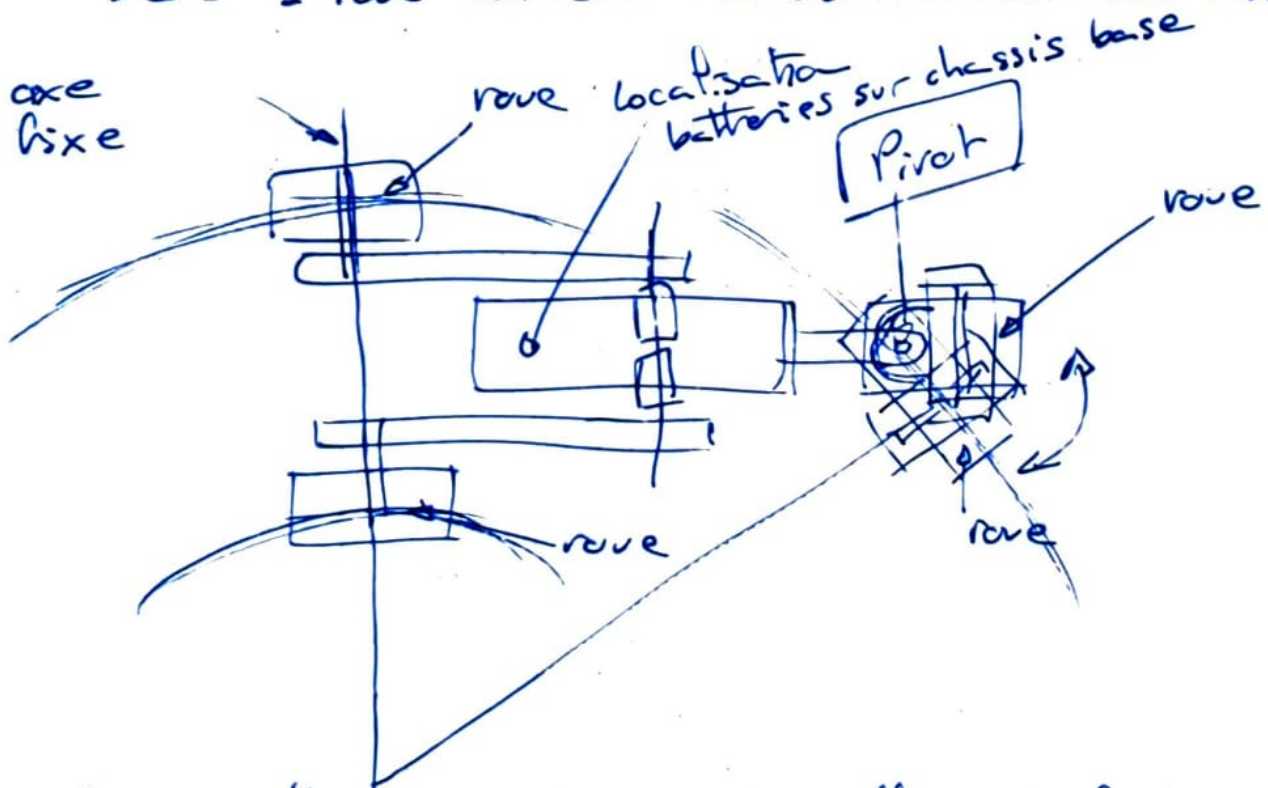 axe
fixe
roue
Localisation
batteries sur chassis base
Pivot
roue
roue
roue